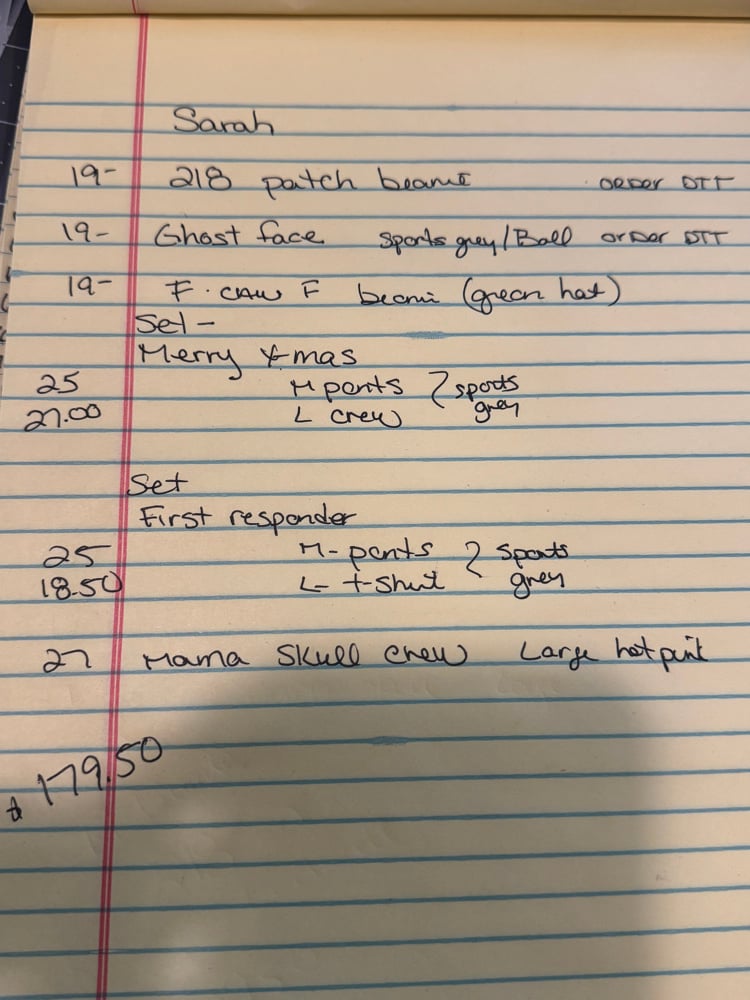 Sarah
19- 218 patch beanie order DTF
19- Ghost face sports grey/Ball order DTF
19- F. CAW F beanie (green hat)
Set -
Merry X-mas
25 M pants } sports
27.00 L crew grey
Set
First responder
25 M- pants } sports
18.50 L- t-shirt grey
27 Mama Skull crew Large hot pink
$179.50